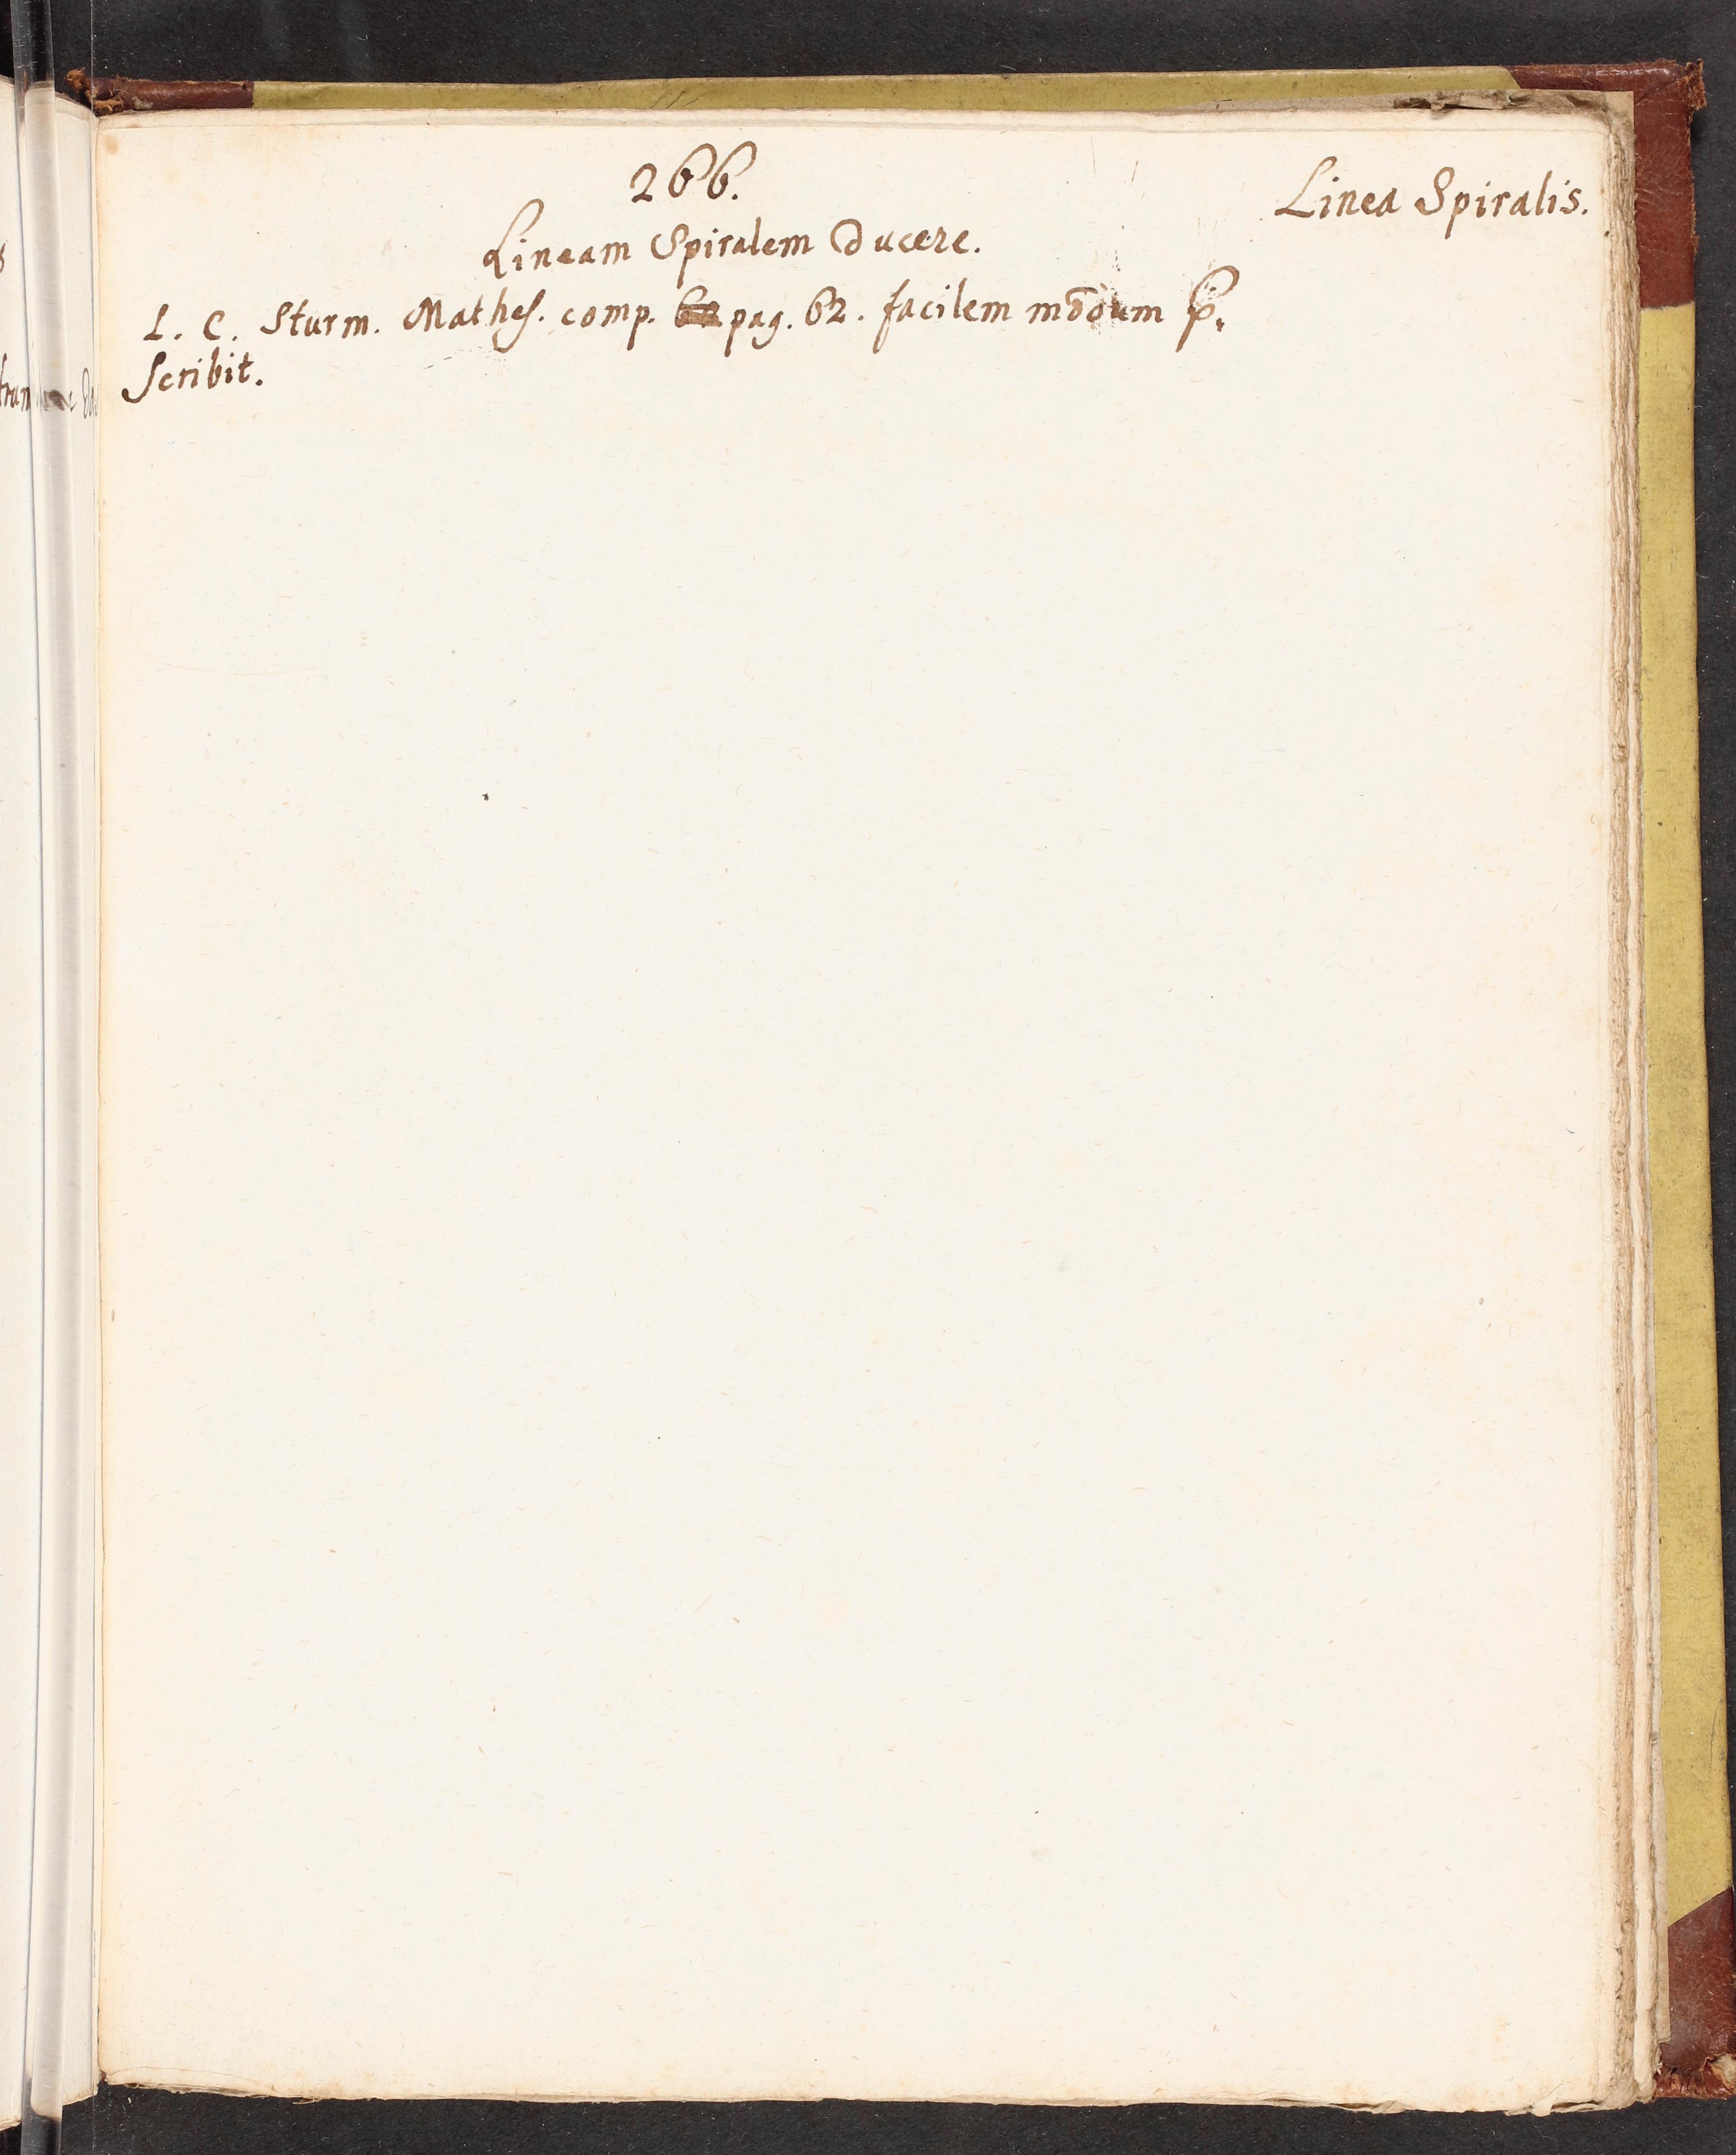 266.
Linea Spiralis.
Lineam Spiralem Ducere.
L. C. Sturm. Mathes. comp. pag. 62. facilem modum p̃.
scribit.